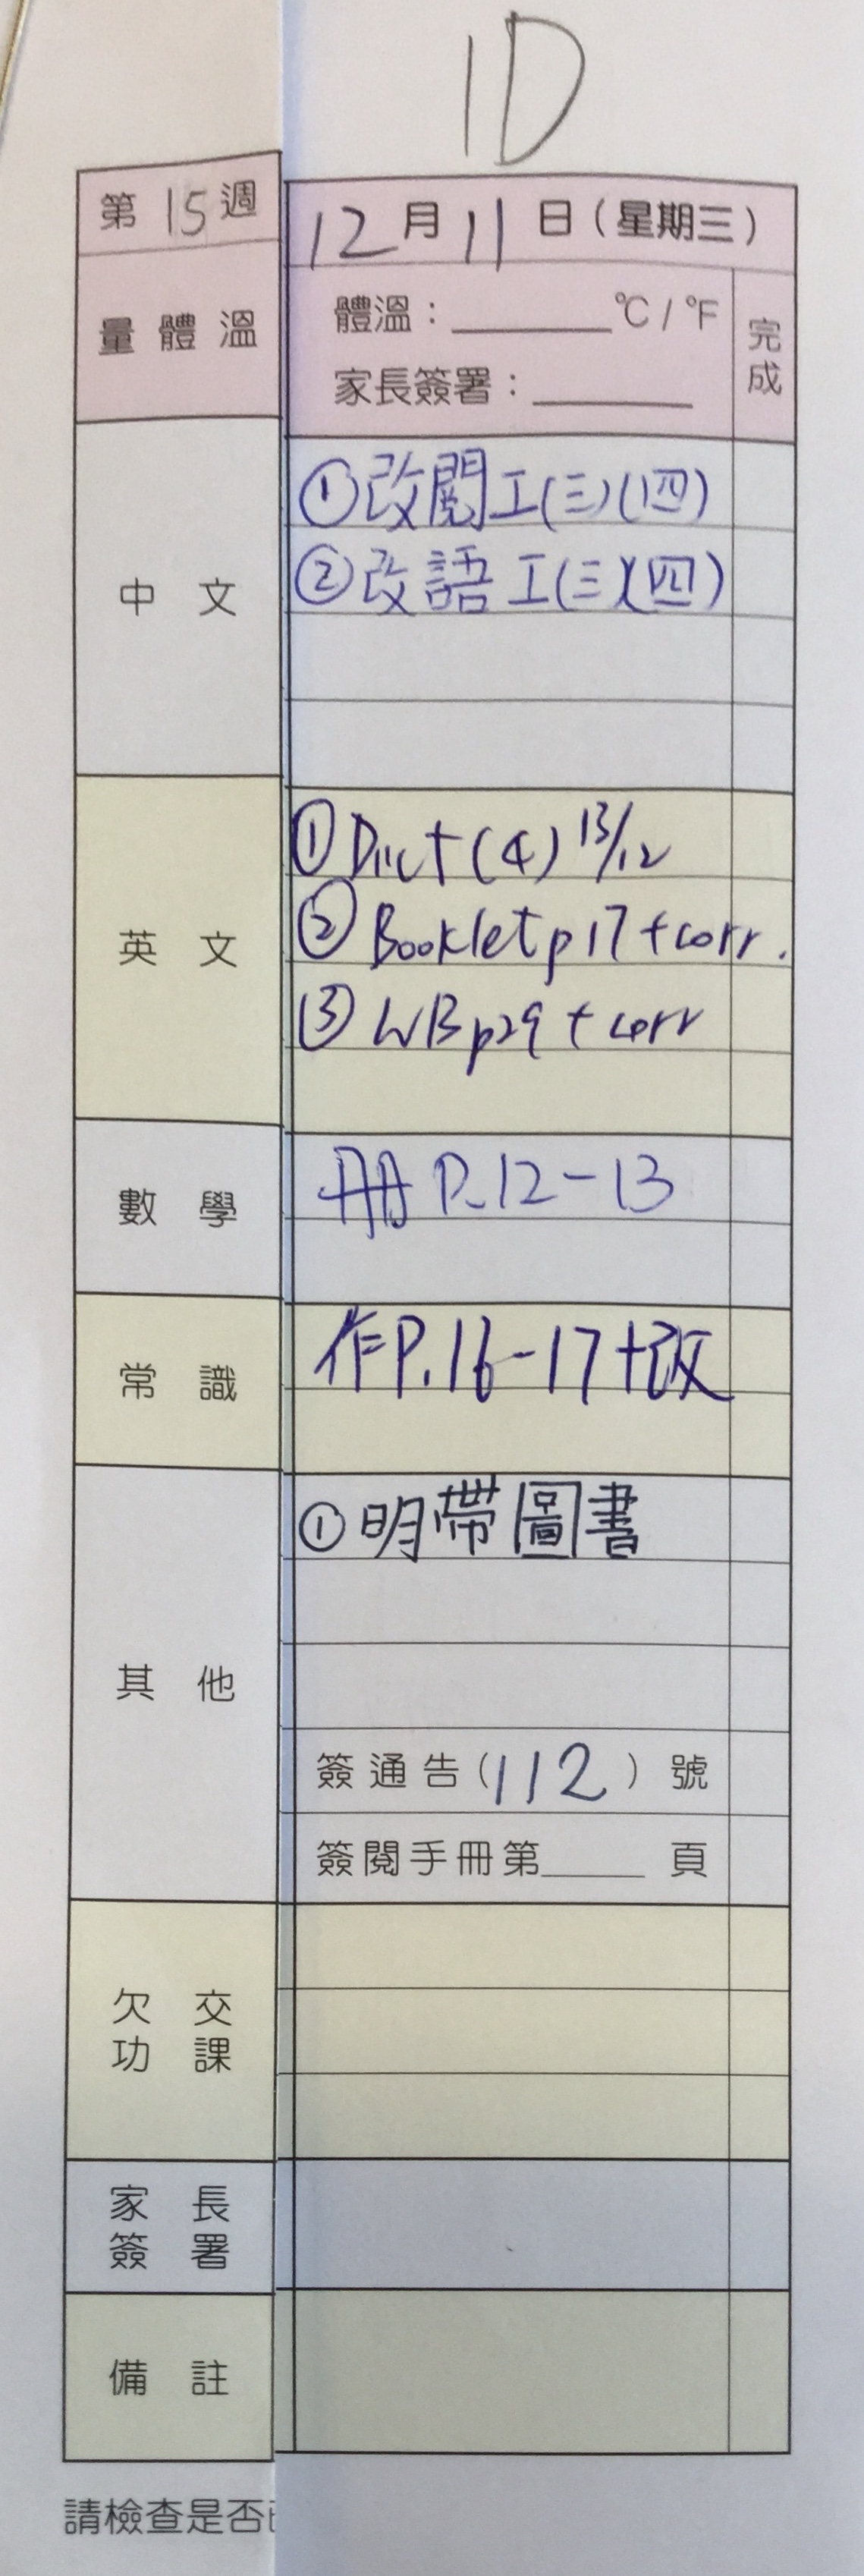 1D
第15週 12月11日(星期三)
量體溫 體溫:______°C/°F 完成
家長簽署:______
中文 ①改閱工(三)(四)
②改語工(三)(四)
英文 ① Dict (4) 13/12
② Booklet p17 + corr.
③ WB p29 + corr
數學 冊 P.12-13
常識 作P.16-17+改
其他 ①明帶圖書
簽通告(112)號
簽閱手冊第____頁
欠交
功課
家長
簽署
備註
請檢查是否